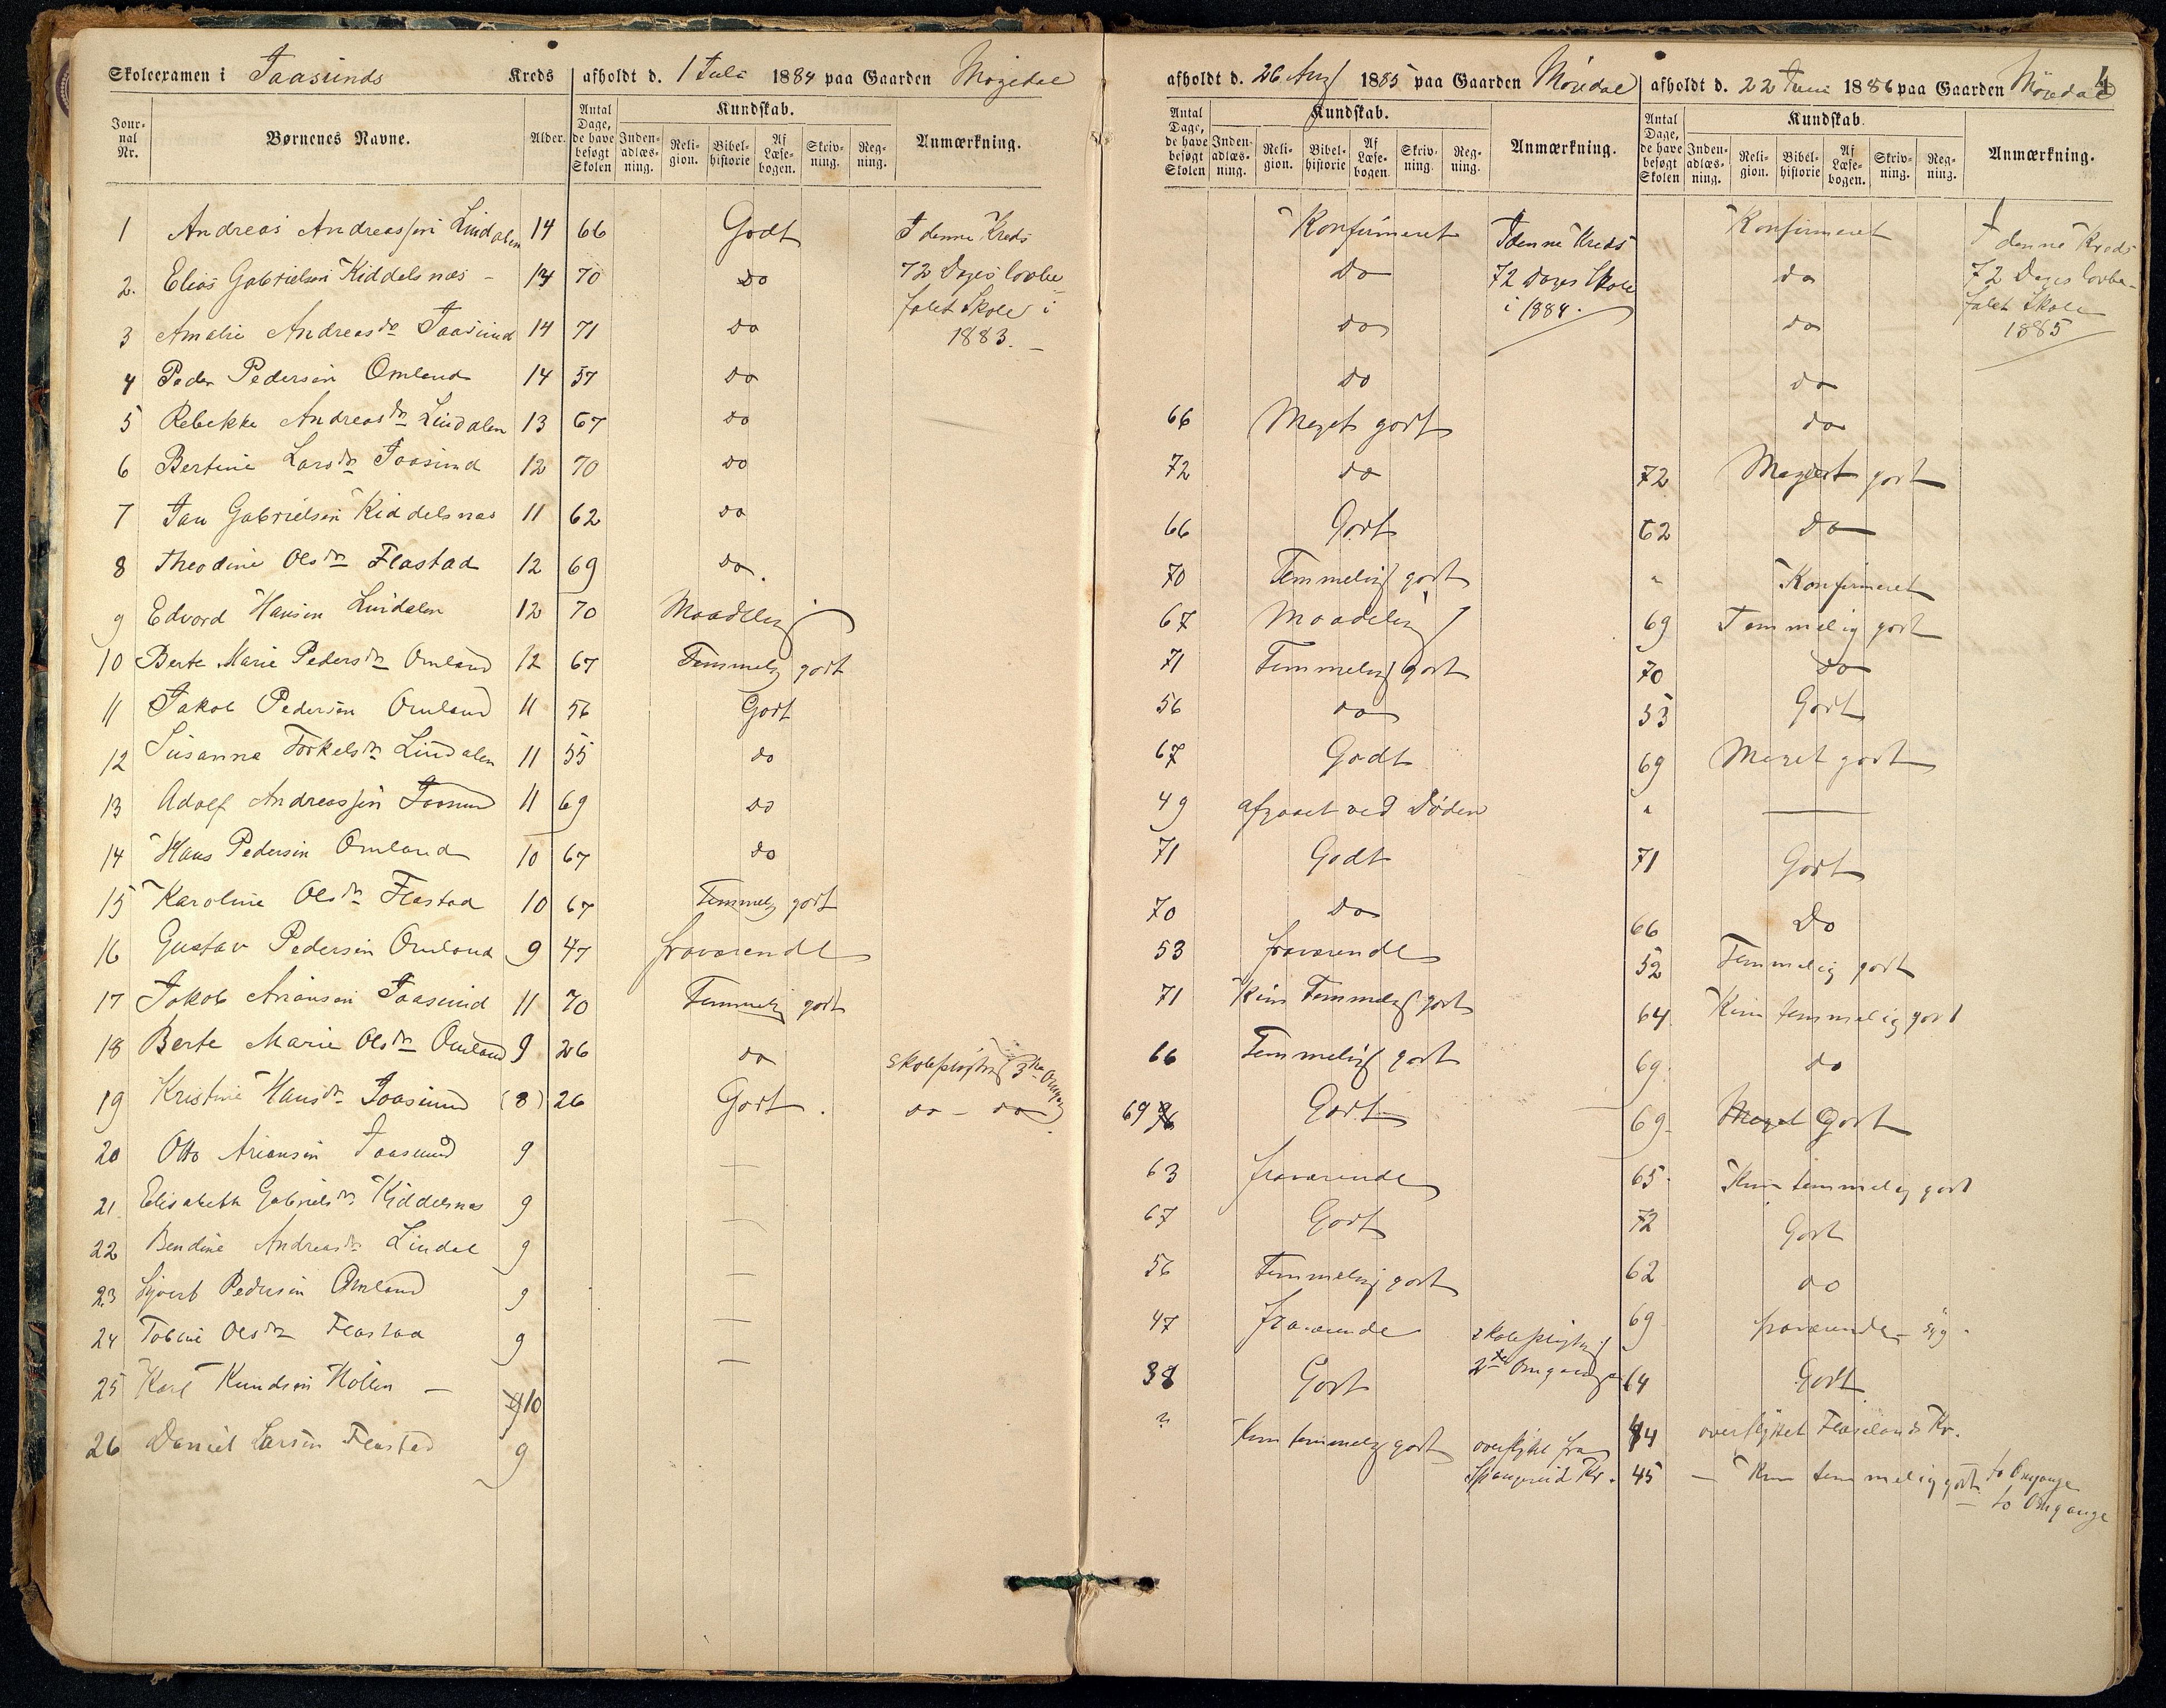 Skoleexamen i Jaasunds Kreds afholdt d. 1 Juli 1884 paa Gaarden Mögedal
afholdt d. 26 Aug 1885 paa Gaarden Mögedal
afholdt d. 22 Juni 1886 paa Gaarden Mögedal
4
Jour-nal Nr. Børnenes Navne. Alder. Antal Dage, de have besøgt Skolen Kundskab. Inden-adlæs-ning. Reli-gion. Bibel-historie Af Læse-bogen. Skriv-ning. Reg-ning. Anmærkning.
Antal Dage, de have besøgt Skolen Kundskab. Inden-adlæs-ning. Reli-gion. Bibel-historie Af Læse-bogen. Skriv-ning. Reg-ning. Anmærkning.
Antal Dage, de have besøgt Skolen Kundskab. Inden-adlæs-ning. Reli-gion. Bibel-historie Af Læse-bogen. Skriv-ning. Reg-ning. Anmærkning.
1 Andreas Andreassen Lindalen 14 66 Godt I denne Kreds Konfirmeret I denne Kreds Konfirmeret I denne Kreds
2. Elias Gabrielsen Kiddelsnæs - 14 70 do 72 Dages lovbe- do 72 Dages Skole do 72 Dages lovbe-
falet Skole i i 1884. falet Skole
3 Amalie Andreasdr Jaasund 14 71 do 1883. - do do 1885
4 Peder Pedersen Omland 14 57 do do do
5 Rebekke Andreasdr Lindalen 13 67 do 66 Meget godt do
6 Bertine Larsdr Jaasund 12 70 do 72 do 72 Meget godt
7 Jan Gabrielsen Kiddelsnæs 11 62 do 66 Godt 62 do
8 Theodine Olsdr Flastad 12 69 do. 70 Temmelig godt " Konfirmeret
9 Edvard Hansen Lindalen 12 70 Maadelig 67 Maadelig 69 Temmelig godt
10 Berte Marie Pedersdr Omland 12 67 Temmelig godt 71 Temmelig godt 70 do
11 Jakob Pedersen Omland 11 56 Godt 56 do 53 Godt
12 Susanne Torkelsdr Lindalen 11 55 do 67 Godt 69 Meget godt
13 Adolf Andreassen Jaasund 11 69 do 49 afgaaet ved Døden " —
14 Hans Pedersen Omland 10 67 do 71 Godt 71 Godt
15 Karoline Olsdr Flastad 10 67 Temmelig godt 70 do 66 Do
16 Gustav Pedersen Omland 9 47 fraværende 53 fraværende 52 Temmelig godt
17 Jakob Ariansen Jaasund 11 70 Temmelig godt 71 Kun Temmelig godt 64 Kun temmelig godt
18 Berte Marie Olsdr Omland 9 26 do skolepligtig 3die Omgang 66 Temmelig godt 69. do
19 Kristine Hansdr Jaasund (8) 26 Godt. do - do 69 Godt 69. Meget Godt
20 Otto Ariansen Jaasund 9 — 63 fraværende 65. Kun temmelig godt
21. Elisabeth Gabrielsdr Kiddelsnæs 9 — 67 Godt 72 Godt
22 Bendine Andreasdr Lindal 9 — 56 Temmelig godt 62 do
23 Sjvert Pedersen Omland 9 — 47 fraværende skolepligtig 69 fraværende - syg.
24 Tobine Olsdr Flastad 9 — 38 Godt 2den Omgang 64 Godt
25 Karl Knudsen Hollen — 10 " Kun temmelig godt overflyttet fra Spangereid Kr. 44 overflyttet Flaselands Kr.
26 Daniel Larsen Flastad 9 45 - Kun temmelig godt to Omgange
- to Omgange